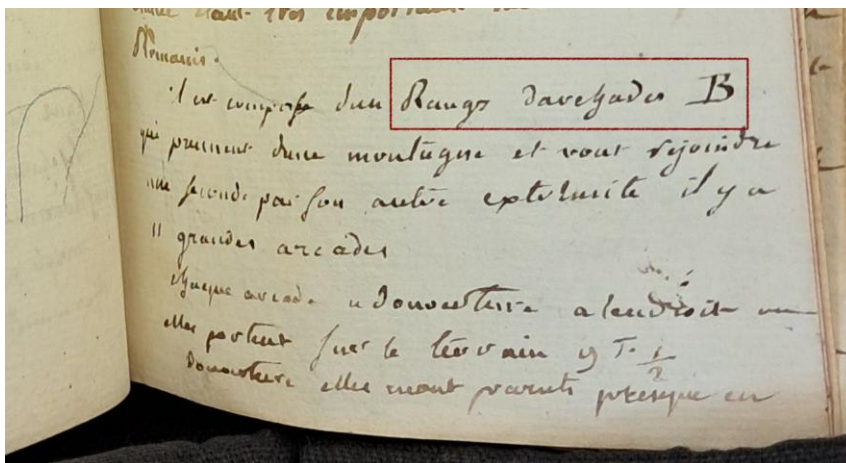 étant très important
Romains.
il est composé dun Rangs darchades B
qui prennent dune montagne et vont rejoindre
une seconde par son autre extremité il y a
11 grandes arcades
chaque arcade a douverture a lendroit ou
elles portent sur le terrain 9 T. 1/2
douverture elles mont parues presque en